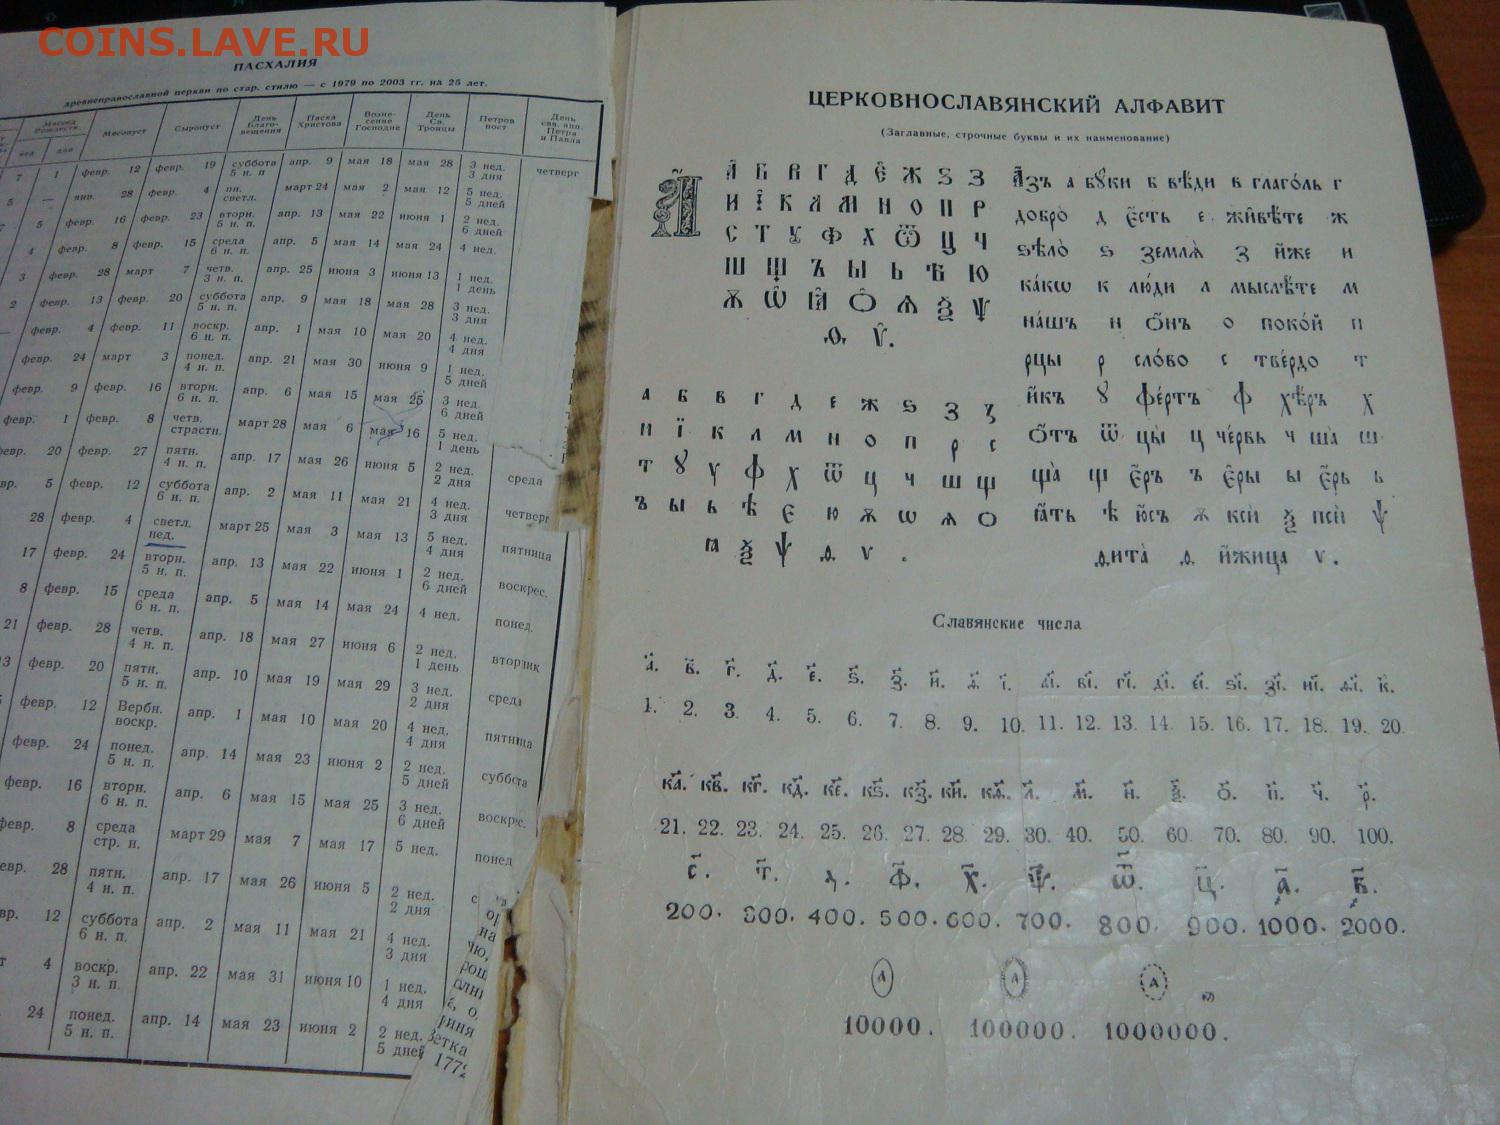 COINS.LAVE.RU
ПАСХАЛИЯ
древлеправославной церкви по стар. стилю — с 1979 по 2003 гг. на 25 лет.
Мясоед Рождеств. Мясопуст Сыропуст День Благовещения Пасха Христова Вознесение Господне День Св. Троицы Петров пост День свв. апп. Петра и Павла
нед дни
7 1 февр. 12 февр. 19 суббота 5 н. п апр. 9 мая 18 мая 28 3 нед. 3 дня четверг
5 — янв. 28 февр. 4 пн. светл. март 24 мая 2 мая 12 5 нед. 5 дней
7 5 февр. 16 февр. 23 вторн. 5 н. п. апр. 13 мая 22 июня 1 2 нед. 6 дней
4 февр. 8 февр. 15 среда 6 н. п. апр. 5 мая 14 мая 24 4 нед.
3 февр. 28 март 7 четв. 3 н. п. апр. 25 июня 3 июня 13 1 нед. 1 день
2 февр. 13 февр. 20 суббота 5 н. п. апр. 9 мая 18 мая 28 3 нед. 3 дня
— февр. 4 февр. 11 воскр. 6 н. п. апр. 1 мая 10 мая 20 4 нед. 4 дня
февр. 24 март 3 понед. 4 н. п. апр. 21 мая 30 июня 9 1 нед. 5 дней
февр. 9 февр. 16 вторн. 5 н. п. апр. 6 мая 15 мая 25 3 нед. 6 дней
февр. 1 февр. 8 четв. страстн. март 28 мая 6 мая 16 5 нед. 1 день
февр. 20 февр. 27 пятн. 4 н. п. апр. 17 мая 26 июня 5 2 нед. 2 дня среда
5 февр. 12 суббота 6 н. п. апр. 2 мая 11 мая 21 4 нед. 3 дня четверг
28 февр. 4 светл. нед. март 25 мая 3 мая 13 5 нед. 4 дня пятница
17 февр. 24 вторн. 5 н. п. апр. 13 мая 22 июня 1 2 нед. 6 дней воскрес.
8 февр. 15 среда 6 н. п. апр. 5 мая 14 мая 24 4 нед. понед.
21 февр. 28 четв. 4 н. п. апр. 18 мая 27 июня 6 2 нед. 1 день вторник
13 февр. 20 пятн. 5 н. п. апр. 10 мая 19 мая 29 3 нед. 2 дня среда
февр. 12 Вербн. воскр. апр. 1 мая 10 мая 20 4 нед. 4 дня пятница
февр. 24 понед. 5 н. п. апр. 14 мая 23 июня 2 2 нед. 5 дней суббота
февр. 16 вторн. 6 н. п. апр. 6 мая 15 мая 25 3 нед. 6 дней воскрес.
февр. 8 среда стр. н. март 29 мая 7 мая 17 5 нед. понед
28 пятн. 4 н. п. апр. 17 мая 26 июня 5 2 нед. 2 дня
12 суббота 6 н. п. апр. 2 мая 11 мая 21 4 нед. 3 дня
4 воскр. 3 н. п. апр. 22 мая 31 июня 10 1 нед. 4 дня
24 понед. 5 н. п. апр. 14 мая 23 июня 2 2 нед. 5 дней
1772
ЦЕРКОВНОСЛАВЯНСКИЙ АЛФАВИТ
(Заглавные, строчные буквы и их наименование)
А҆ Б В Г Д Є Ж Ѕ З
И І К Л М Н О П Р
С Т Ꙋ Ф Х Ѿ Ц Ч
Ш Щ Ъ Ы Ь Ѣ Ю
Ѫ Ѡ Ꙗ О Ѧ Ѯ Ѱ
Ѳ Ѵ.
а б в г д е ж ѕ з ꙁ
и ї к л м н о п р с
т ꙋ у ф х ѿ ц ч ш щ
ъ ы ь ѣ є ю ѫ ѡ ѧ о
ꙗ ѯ ѱ ѳ ѵ .
А҆зъ а бꙋ́ки б вѣ́ди в глаго́ль г
добро̀ д є҆́сть е живѣ́те ж
ѕѣло̀ ѕ землѧ̀ з и҆́же и
ка́кѡ к лю́ди л мыслѣ́те м
на́шъ н о҆́нъ о поко́й п
рцы̀ р сло́во с тве́рдо т
и҆́къ ꙋ фе́ртъ ф хѣ́ръ х
о҆́тъ ѿ цы̀ ц че́рвь ч ша̀ ш
ща̀ щ є҆́ръ ъ є҆ры̀ ы є҆́рь ь
ꙗ҆́ть ѣ ю҆́съ ѫ ксѝ ѯ псѝ ѱ
ѳита̀ ѳ и҆́жица ѵ .
Славянские числа
а҃. в҃. г҃. д҃. е҃. ѕ҃. з҃. и҃. ѳ҃. і҃. аі҃. ві҃. гі҃. ді҃. еі҃. ѕі҃. зі҃. иі҃. ѳі҃. к҃.
1. 2. 3. 4. 5. 6. 7. 8. 9. 10. 11. 12. 13. 14. 15. 16. 17. 18. 19. 20.
ка҃. кв҃. кг҃. кд҃. ке҃. кѕ҃. кз҃. ки҃. кѳ҃. л҃. м҃. н҃. ѯ҃. о҃. п҃. ч҃. р҃.
21. 22. 23. 24. 25. 26. 27. 28. 29. 30. 40. 50. 60. 70. 80. 90. 100.
с҃. т҃. у҃. ф҃. х҃. ѱ҃. ѿ҃. ц҃. ҂а҃. ҂в҃.
200. 300. 400. 500. 600. 700. 800. 900. 1000. 2000.
А А А
10000. 100000. 1000000.